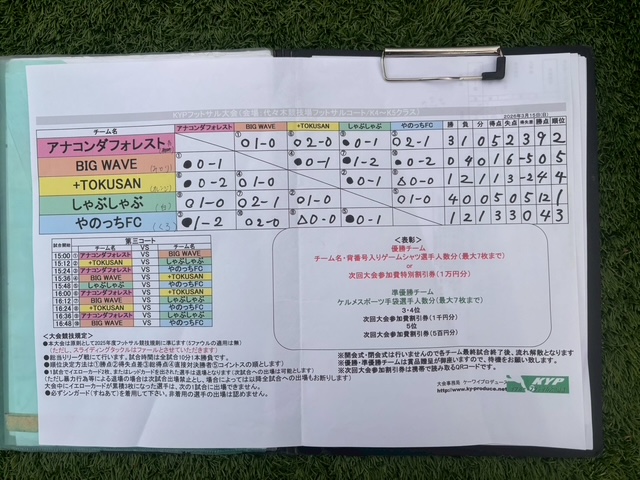 KYPフットサル大会(会場:代々木競技場フットサルコート/K4～K5クラス)
2026年3月15日(日)
チーム名 アナコンダフォレスト BIG WAVE +TOKUSAN しゃぶしゃぶ やのっちFC 勝 負 分 得点 失点 得失差 勝点 順位
アナコンダフォレスト ○1-0 ○2-0 ●0-1 ○2-1 3 1 0 5 2 3 9 2
BIG WAVE ●0-1 ●0-1 ●1-2 ●0-2 0 4 0 1 6 -5 0 5
+TOKUSAN ●0-2 ○1-0 ●0-1 △0-0 1 2 1 1 3 -2 4 4
しゃぶしゃぶ ○1-0 ○2-1 ○1-0 ○1-0 4 0 0 5 0 5 12 1
やのっちFC ●1-2 ○2-0 △0-0 ●0-1 1 2 1 3 3 0 4 3
第三コート
試合開始 チーム名 VS チーム名
15:00 ① アナコンダフォレスト VS BIG WAVE
15:12 ② +TOKUSAN VS しゃぶしゃぶ
15:24 ③ アナコンダフォレスト VS やのっちFC
15:36 ④ BIG WAVE VS +TOKUSAN
15:48 ⑤ しゃぶしゃぶ VS やのっちFC
16:00 ⑥ アナコンダフォレスト VS +TOKUSAN
16:12 ⑦ BIG WAVE VS しゃぶしゃぶ
16:24 ⑧ +TOKUSAN VS やのっちFC
16:36 ⑨ アナコンダフォレスト VS しゃぶしゃぶ
16:48 ⑩ BIG WAVE VS やのっちFC
<表彰>
優勝チーム
チーム名・背番号入りゲームシャツ選手人数分(最大7枚まで)
or
次回大会参加費特別割引券(1万円分)
準優勝チーム
ケルメスポーツ手袋選手人数分(最大7枚まで)
3・4位
次回大会参加費割引券(1千円分)
5位
次回大会参加費割引券(5百円分)
<大会競技規定>
●本大会は原則として2025年度フットサル競技規則に準じます(5ファウルの適用は無)
(ただし、スライディングタックルはファールとさせていただきます)
●総当りリーグ戦にて行います。試合時間は全試合10分1本勝負です。
●順位決定方法は(①勝点②得失点差③総得点④直接対決勝者⑤コイントスの順とします)
●1試合でイエローカード2枚、またはレッドカードを出された選手は退場となります(次試合への出場は可能とします)
(ただし暴力行為等による退場の場合は次試合出場禁止とし、場合によっては以降全試合への出場もお断りします)
大会中にイエローカードが累積3枚になった選手は、次の1試合に出場できません。
●必ずシンガード(すねあて)を着用して下さい。非着用の選手の出場は認めません。
※開会式・閉会式は行いませんので各チーム最終試合終了後、流れ解散となります
※優勝・準優勝チームは賞品贈呈が御座いますので、待機をお願い致します。
※次回大会参加費割引券は携帯で読み取るQRコードです。
大会事務局 ケーワイプロデュース
http://www.ky-produce.net
KYP